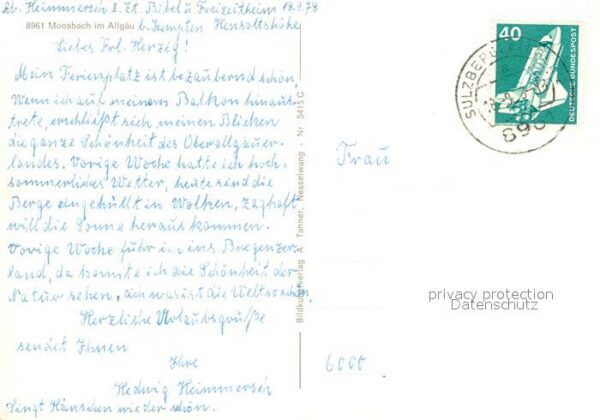 Ab. Heimmersch z. Zt. Bibel u Freizeitheim 18.9.78
8961 Moosbach im Allgäu b. Kempten Hensoltshöhe
Liebes Frl. Herzig!
Mein Ferienplatz ist bezaubernd schön
Wenn ich auf meinem Balkon hinaus
trete, erschließt sich meinen Blicken
die ganze Schönheit des Oberallgäuer-
landes. Vorige Woche hatte ich hoch-
sommerliches Wetter, heute sind die
Berge eingehüllt in Wolken, zaghaft
will die Sonne herauskommen.
Vorige Woche fuhr ich ins Bregenzer-
land, da konnte ich die Schönheit der
Natur sehen, ach was ist die Welt so schön.
Herzliche Urlaubsgrüße
sendet Ihnen
Ihre
Hedwig Heimmersch
Singt Hänschen wieder schön.
Bildkunstverlag A. Tanner, Nesselwang - Nr. 5415 C
40
DEUTSCHE BUNDESPOST
SULZBERG
8963
Frau
6000
privacy protection
Datenschutz